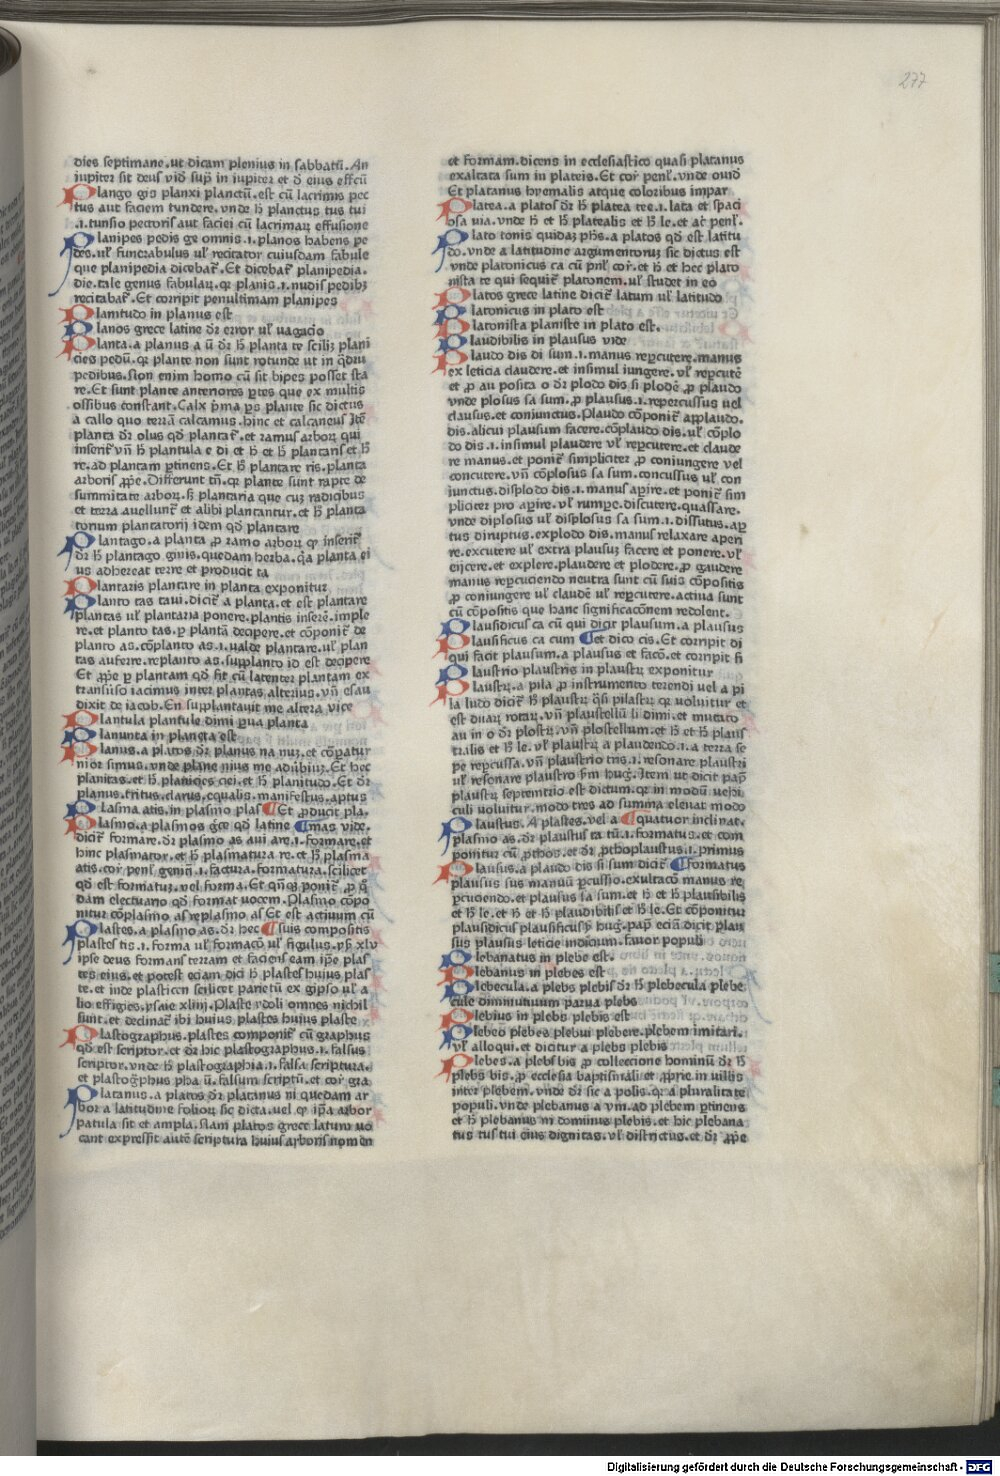 277
dies septimane.ut dicam plenius in sabbatũ. An
iupiter sit deus vid̃ sup̃ in iupiter et d̃ eius effcũ
Plango gis planxi planctũ.est cũ lacrimis pec
tus aut faciem tundere.vnde h̃ planctus tus tui
.i.tunsio pectoris aut faciei cũ lacrimaꝝ effusione
Planipes pedis ge omnis.i.planos habens pe
des.ul̃ funerabulus ul̃ recitator cuiusdam fabule
que planipedia dicebat̃.Et dicebat̃ planipedia.
die.tale genus fabulaꝝ.qꝛ planis.i.nudis pedibꝫ
recitabat̃.Et corripit penultimam planipes
Planitudo in planus est
Planos grece latine dꝛ̃ error ul̃ uagacio
Planta.a planus a ũ dꝛ̃ h̃ planta te scilicꝫ plani
cies pedũ.qꝛ plante non sunt rotunde ut in q̃dru
pedibus.Non enim homo cũ sit bipes posset sta
re.Et sunt plante anteriores ꝑtes que ex multis
ossibus constant.Calx p̃ma ꝑs plante sic dictus
a callo quo terrã calcamus.hinc et calcaneus Itẽ
planta dꝛ̃ olus qd̃ plantat̃.et ramus arboꝝ qui
inserit̃ vñ h̃ plantula e di et h̃ et h̃ plantaris et h̃
re.ad plantam ꝑtinens.Et h̃ plantare ris.planta
arboris ꝓp̃e.Differunt tñ.qꝛ plante sunt rapte de
summitate arboꝝ.sꝫ plantaria que cuꝫ radicibus
et terra auellunt̃ et alibi plantantur.et h̃ planta
torium plantatorij idem qd̃ plantare
Plantago.a planta ꝓ ramo arboꝝ qꝫ inserit̃
dꝛ̃ h̃ plantago ginis.quedam herba.q̃a planta ei
us adhereat terre et producit ta
Plantaris plantare in planta exponitur
Planto tas taui.dicit̃ a planta.et est plantare
plantas ul̃ plantaria ponere.plantis inserẽ.imple
re.et planto tas.ꝑ plantã decipere.et cõponit̃ de
planto as.cõplanto as.i.ualde plantare.ul̃ plan
tas auferre.replanto as.supplanto id est decipere
Et ꝓp̃e ꝑ plantam qd̃ fit cũ latenter plantam ex
transuso iacimus inter plantas alterius.vñ esau
dixit de iacob.En supplantauit me altera vice
Plantula plantule dimi ꝑua planta
Planunta in planeta est
Planus.a platos dꝛ̃ planus na nuꝫ.et cõꝑatur
nior simus.vnde plane nius me adũbiuꝫ.Et hec
planitas.et h̃ planicies ciei.et h̃ planitudo.Et dꝛ̃
planus.tritus.clarus.equalis.manifestus.aptus
Plasma atis.in plasmo plas Et ꝓducit pla.
Plasmo.a plasmos g̃ce qd̃ latine mas vide.
dicit̃ formare.dꝛ̃ plasmo as aui are.i.formare.et
hinc plasmator.et h̃ plasmatura re.et h̃ plasma
atis.cor̃ penl̃ geniti.i.factura.formatura.scilicet
qd̃ est formatuꝫ.vel forma.Et qñqꝫ ponit̃ ꝓ q̃
dam electuario qd̃ format uocem.Plasmo cõpo
nitur cõplasmo as replasmo as Et est actiuum cũ
Plastes.a plasmo as.dꝛ̃ hec suis compositis
plastes tis.i.forma ul̃ formacõ ul̃ figulus.ps̃ xlv
ipse deus formans terram et faciens eam ip̃e plas
tes eius.et potest eciam dici h̃ plastes huius plas
te.et inde plasticen scilicet parietũ ex gipso ul̃ a
lio effigies.ysaie xliiij.Plaste ydoli omnes nichil
sunt.et declinat̃ ibi huius plastes huius plaste
Plastographus.plastes componit̃ cũ graphus
qd̃ est scriptor.et dꝛ̃ hic plastographus.i.falsus
scriptor.vnde h̃ plastographia.i.falsa scriptura.
et plastog̃phus pha ũ.falsum scriptũ.et cor̃ gra
Platanus.a platos dꝛ̃ platanus ni quedam ar
bor a latitudine folioꝝ sic dicta.uel qꝛ ip̃a arbor
patula sit et ampla.Nam platos grece latum uo
cant expressit autẽ scriptura huius arboris nomen
et formam.dicens in ecclesiastico quasi platanus
exaltata sum in plateis.Et cor̃ penl̃.vnde ouid̃
Et platanus hyemalis atque coloribus impar
Platea.a platos dꝛ̃ h̃ platea tee.i.lata et spaci
osa uia.vnde h̃ et h̃ platealis et h̃ le.et ac̃ penl̃.
Plato tonis quidaꝫ ph̃s.a platos qd̃ est latitu
do.vnde a latitudine argumentoruꝫ sic dictus est
vnde platonicus ca cũ pñl̃ cor̃.et h̃ et hec plato
nista te qui sequit̃ platonem.ul̃ studet in eo
Platos grece latine dicit̃ latum ul̃ latitudo
Platonicus in plato est
Platonista planiste in plato est.
Plaudibilis in plausus vide
Plaudo dis di sum.i.manus reꝑcutere.manus
ex leticia claudere.et insimul iungere.vl̃ reꝑcutẽ
et ꝓ au posita o dꝛ̃ plodo dis si plodẽ ꝓ plaudo
vnde plosus sa sum.ꝓ plausus.i.repercussus uel
clausus.et coniunctus.Plaudo cõponit̃ applaudo.
dis.alicui plausum facere.cõplaudo dis.ul̃ cõplo
do dis.i.insimul plaudere vl̃ reꝑcutere.et claude
re manus.et ponit̃ simpliciter ꝓ coniungere vel
concutere.vñ cõplosus sa sum.concussus ul̃ con
iunctus.displodo dis.i.manus aꝑire.et ponit̃ sim
pliciter pro aꝑire.vl̃ rumpe.discutere.quassare.
vnde diplosus ul̃ displosus sa sum.i.dissutus.aꝑ
tus diruptus.explodo dis.manus relaxare aperi
re.excutere ul̃ extra plausuꝫ facere et ponere.vl̃
eijcere.et explere.plaudere et plodere.ꝓ gaudere
manus reꝑcuciendo neutra sunt cũ suis cõpositis
ꝓ coniungere ul̃ claudẽ ul̃ reꝑcutere.actiua sunt
cũ cõpositis que hanc significacõnem redolent.
Plausidicus ca cũ qui dicit plausum.a plausus
Plausificus ca cum et dico cis.Et corripit di
qui facit plausum.a plausus et facio.et corripit fi
Plaustrio plaustris in plaustꝝ exponitur
Plaustꝝ.a pila ꝓ instrumento terendi uel a pi
la ludo dicit̃ h̃ plaustꝝ q̃si pilastꝝ qꝛ voluitur et
est duaꝝ rotaꝝ.vñ plaustellũ li dimi.et mutato
au in o dꝛ̃ plostꝝ.vñ plostellum.et h̃ et h̃ plaus
tralis et h̃ le.vl̃ plaustꝝ a plaudendo.i.a terra se
pe reꝑcussa.vñ plaustrio tris.i.resonare plaustri
ul̃ resonare plaustro s̃m hug̃.Item ut dicit pap̃
plaustꝝ septemtrio est dictum.qꝛ in modũ uehi
culi voluitur.modo tres ad summa eleuat modo
Plaustus. A plastes.vel a quatuor inclinat.
plasmo as.dꝛ̃ plaustus ta tũ.i.formatus.et com
ponitur cũ ꝓthos.et dꝛ̃ ꝓthoplaustus.i.primus
Plausus.a plaudo dis si sum dicit̃ formatus
plausus sus manuũ ꝑcussio.exultacõ manus re
ꝑcuciendo.et plausus sa sum.et h̃ et h̃ plausibilis
et h̃ le.et h̃ et h̃ plaudibilis et h̃ le.Et cõponitur
plausidicus plausificusqꝫ hug̃.pap̃ eciã dicit plau
sus plausus leticie indicium.fauor populi
Plebanatus in plebe est.
Plebanus in plebes est
Plebecula.a plebs plebis dꝛ̃ h̃ plebecula plebe
cule diminutiuum parua plebs
Plebius in plebs plebis est
Plebeo plebes plebui plebere.plebem imitari.
vl̃ alloqui.et dicitur a plebs plebis
Plebes.a plebs bis ꝓ colleccione hominũ dꝛ̃ h̃
plebs bis.ꝓ ecclesia baptismali et ꝓprie.in uillis
inter plebem.vnde dꝛ̃ sic a polis.qꝛ a pluralitate
populi.vnde plebanus a vm.ad plebem ꝑtinens
et h̃ plebanus ni dominus plebis.et hic plebana
tus tus tui eius dignitas.vl̃ districtus.et dꝛ̃ ꝓp̃e
Digitalisierung gefördert durch die Deutsche Forschungsgemeinschaft - DFG